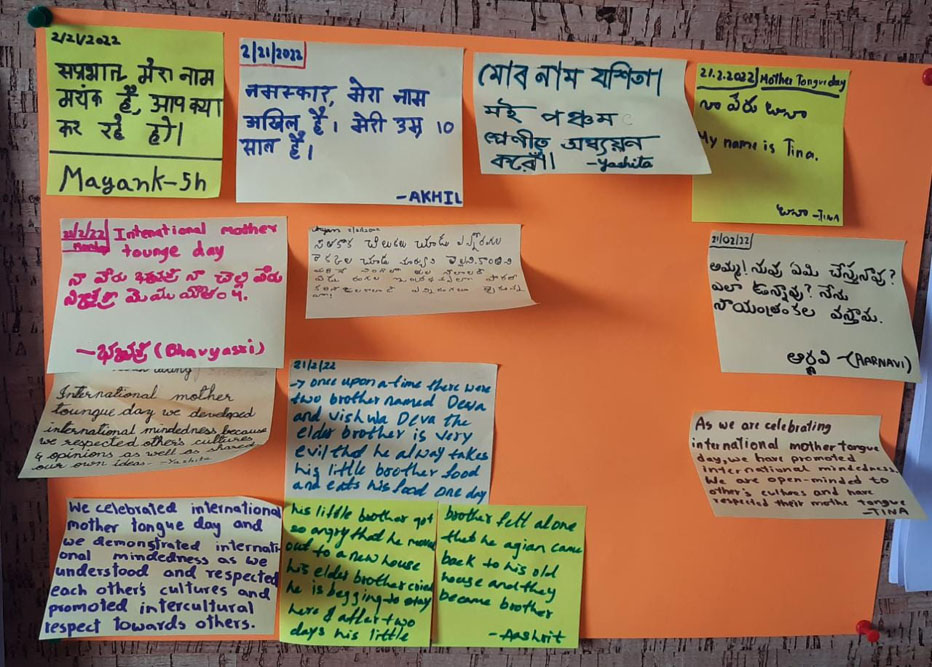 2/21/2022
सुप्रभात, मेरा नाम
मयंक है, आप क्या
कर रहे हो।
Mayank-5h
2/21/2022
नमस्कार, मेरा नाम
अखिल है। मेरी उम्र 10
साल है।
-AKHIL
মোৰ নাম যশিতা।
মই পঞ্চম
শ্ৰেণীত অধ্যয়ন
কৰোঁ।
-Yashita
21.2.2022 Mother Tongue day
నా పేరు టీనా
My name is Tina.
టీనా -TINA
21/2/22 Intentional mother
tounge day
నా పేరు భవ్యశ్రీ నా చెల్లి పేరు
-భవ్యశ్రీ (Bhavyasri)
21/02/22
అమ్మ! నువు ఏమి చేస్తున్నావు?
ఎలా ఉన్నావు? నేను
సాయంత్రంకల వస్తాను.
ఆర్ణవి -(AARNAVI)
International mother
toungue day we developed
international mindedness because
we respected other's cultures
& opinions as well as shared
our own ideas. -Yashita
21/2/22
→ once upon a time there were
two brother named Deva
and vishwa Deva the
elder brother is very
evil that he alway takes
his little brother food
and eats his food one day
As we are celebrating
international mother tongue
day, we have promoted
international mindedness
We are open-minded to
other's cultures and have
respected their mothe tongue
-TINA
We celebrated international
mother tongue day and
we demonstrated internati-
onal mindedness as we
understood and respected
each other's cultures and
promoted intercultural
respect towards others.
his little brother got
so angry that he moved
out to a new house
his elder brother cried
he is begging to stay
here & after two
days his little
brother felt alone
that he agian came
back to his old
house and they
became brother
-Aashrit